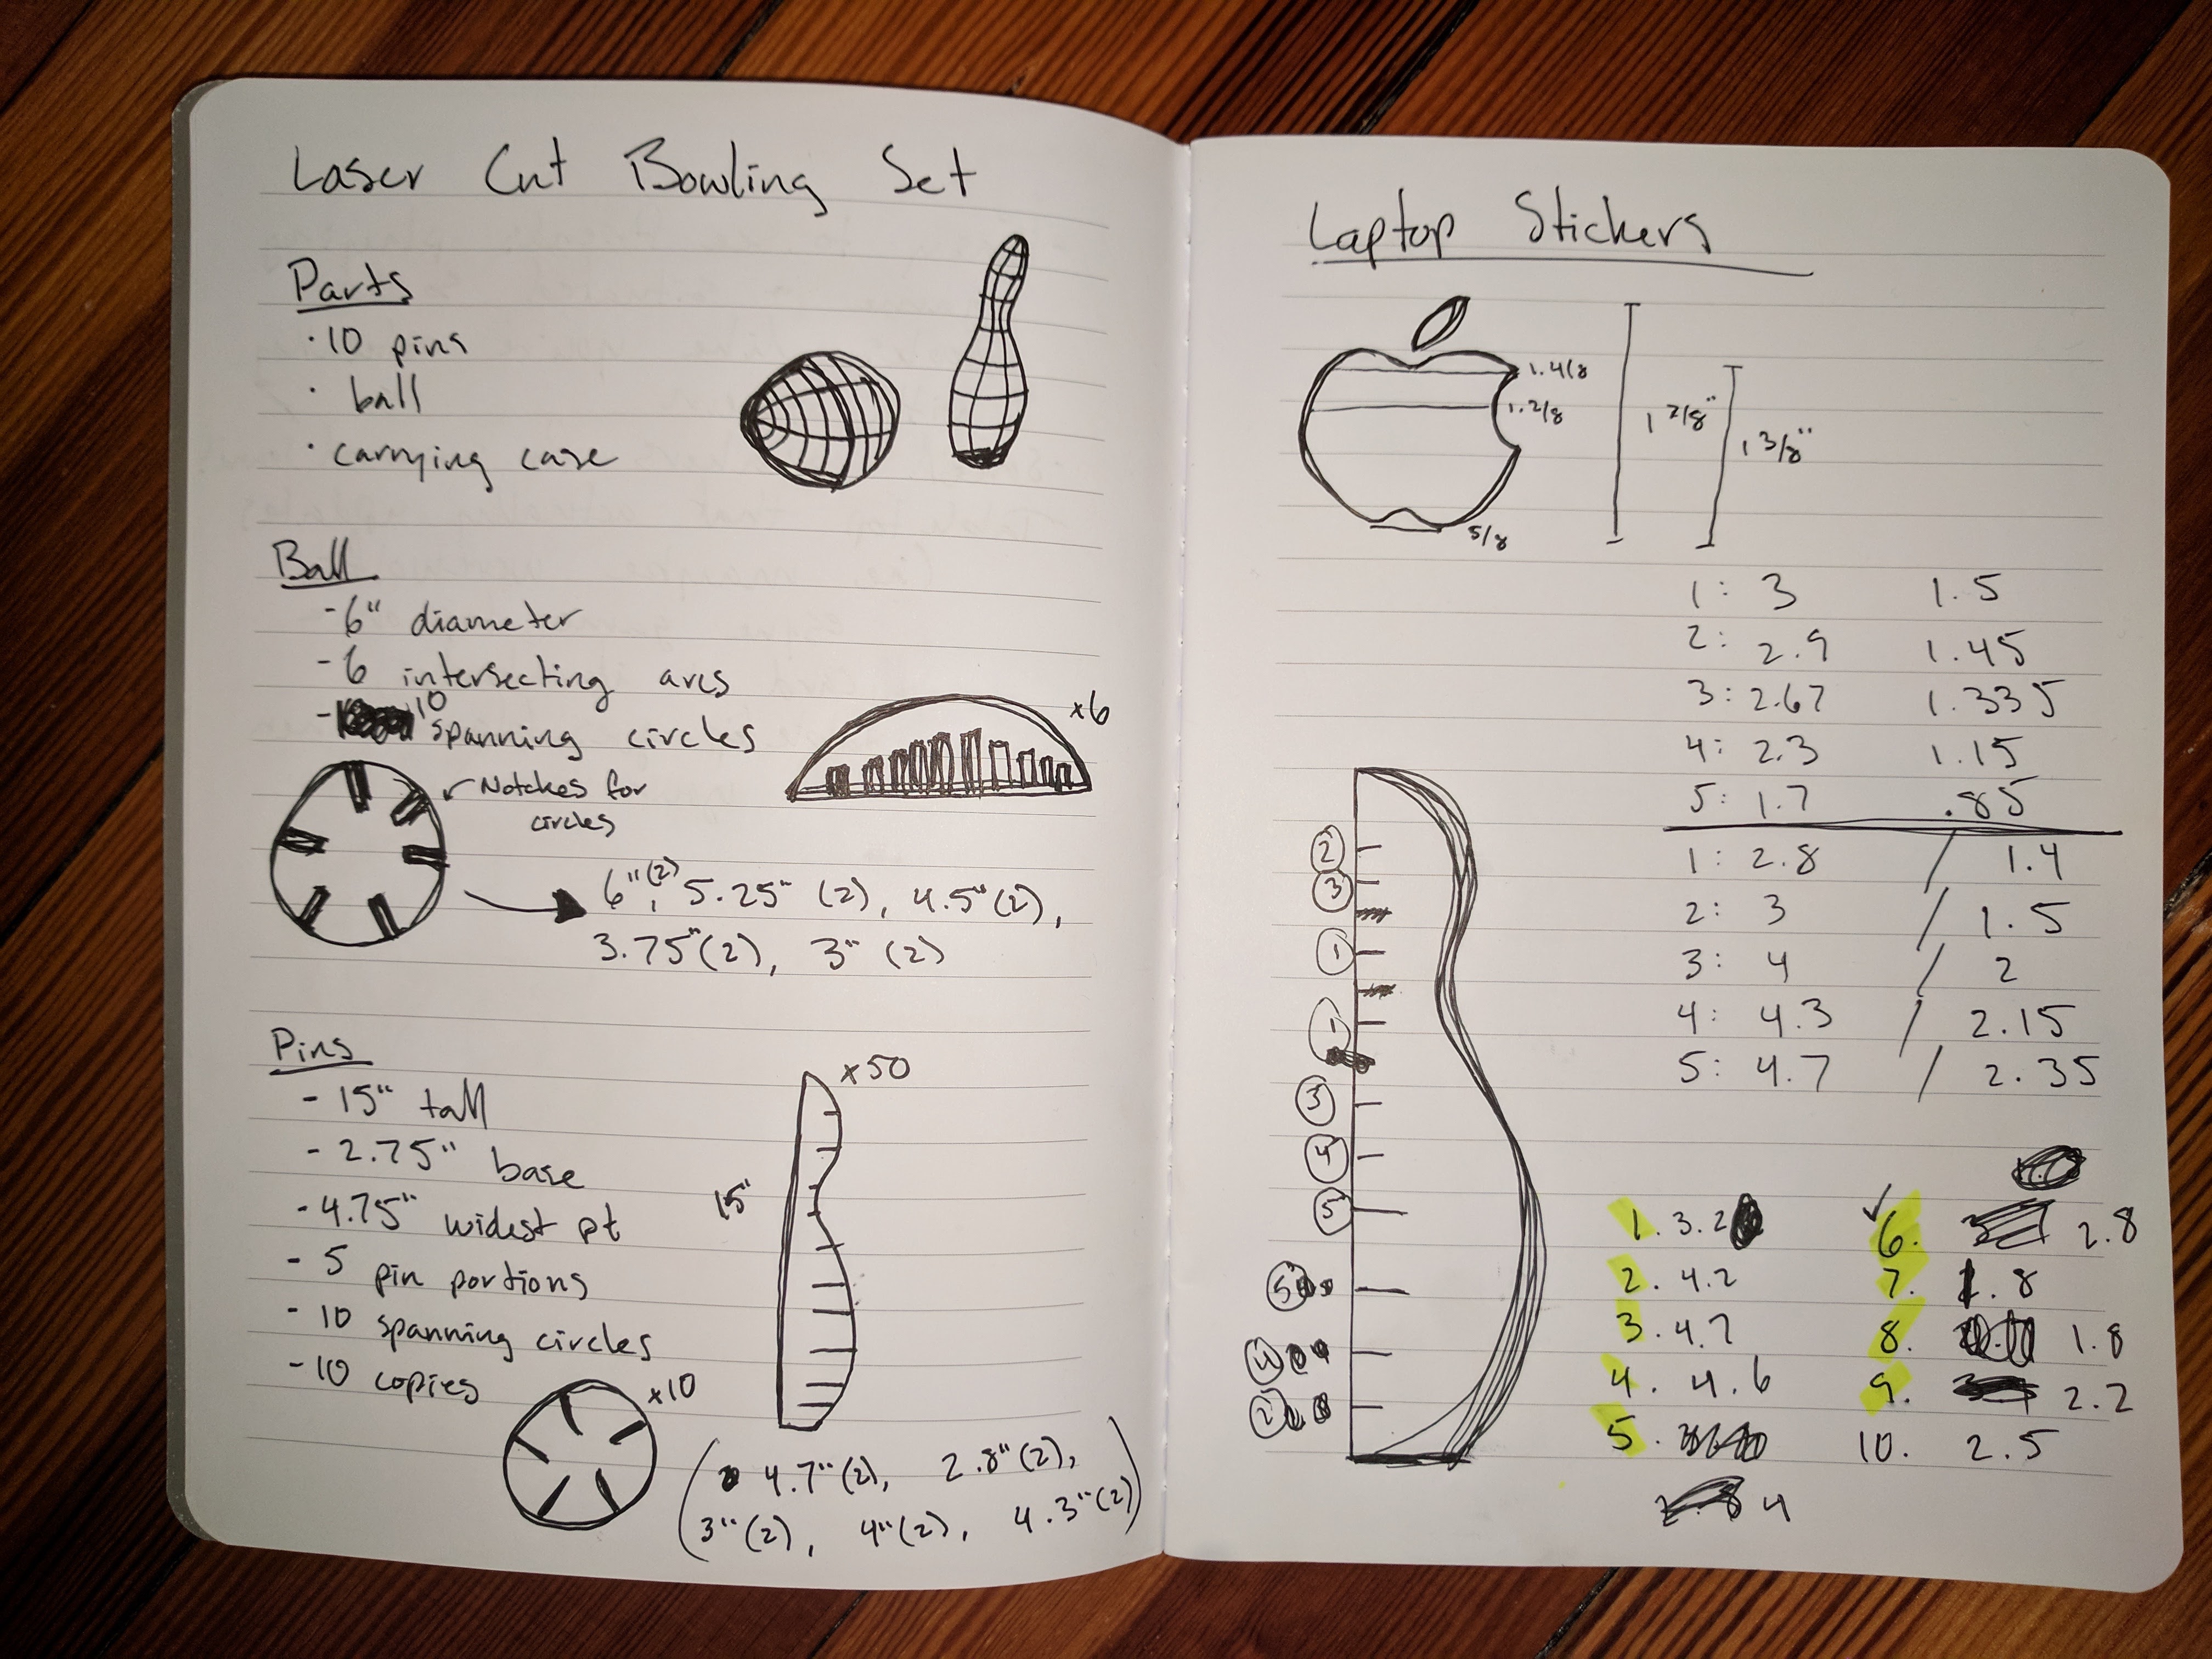 Laser Cut Bowling Set
Parts
· 10 pins
· ball
· carrying case
Ball
- 6" diameter
- 6 intersecting arcs
- 10 spanning circles
x6
Notches for
circles
6" (2), 5.25" (2), 4.5" (2),
3.75" (2), 3" (2)
Pins
- 15" tall
- 2.75" base
- 4.75" widest pt
- 5 pin portions
- 10 spanning circles
- 10 copies
x50
15"
x10
( 4.7" (2), 2.8" (2),
3" (2), 4" (2), 4.3" (2) )
Laptop Stickers
1.4/8
1.2/8
5/8
1 7/8"
1 3/8"
1: 3 1.5
2: 2.9 1.45
3: 2.67 1.335
4: 2.3 1.15
5: 1.7 .85
1: 2.8 / 1.4
2: 3 / 1.5
3: 4 / 2
4: 4.3 / 2.15
5: 4.7 / 2.35
2
3
1
1
3
4
5
5
4
2
1. 3.2
2. 4.2
3. 4.7
4. 4.6
5.
4
6. 2.8
7. .8
8. 1.8
9. 2.2
10. 2.5